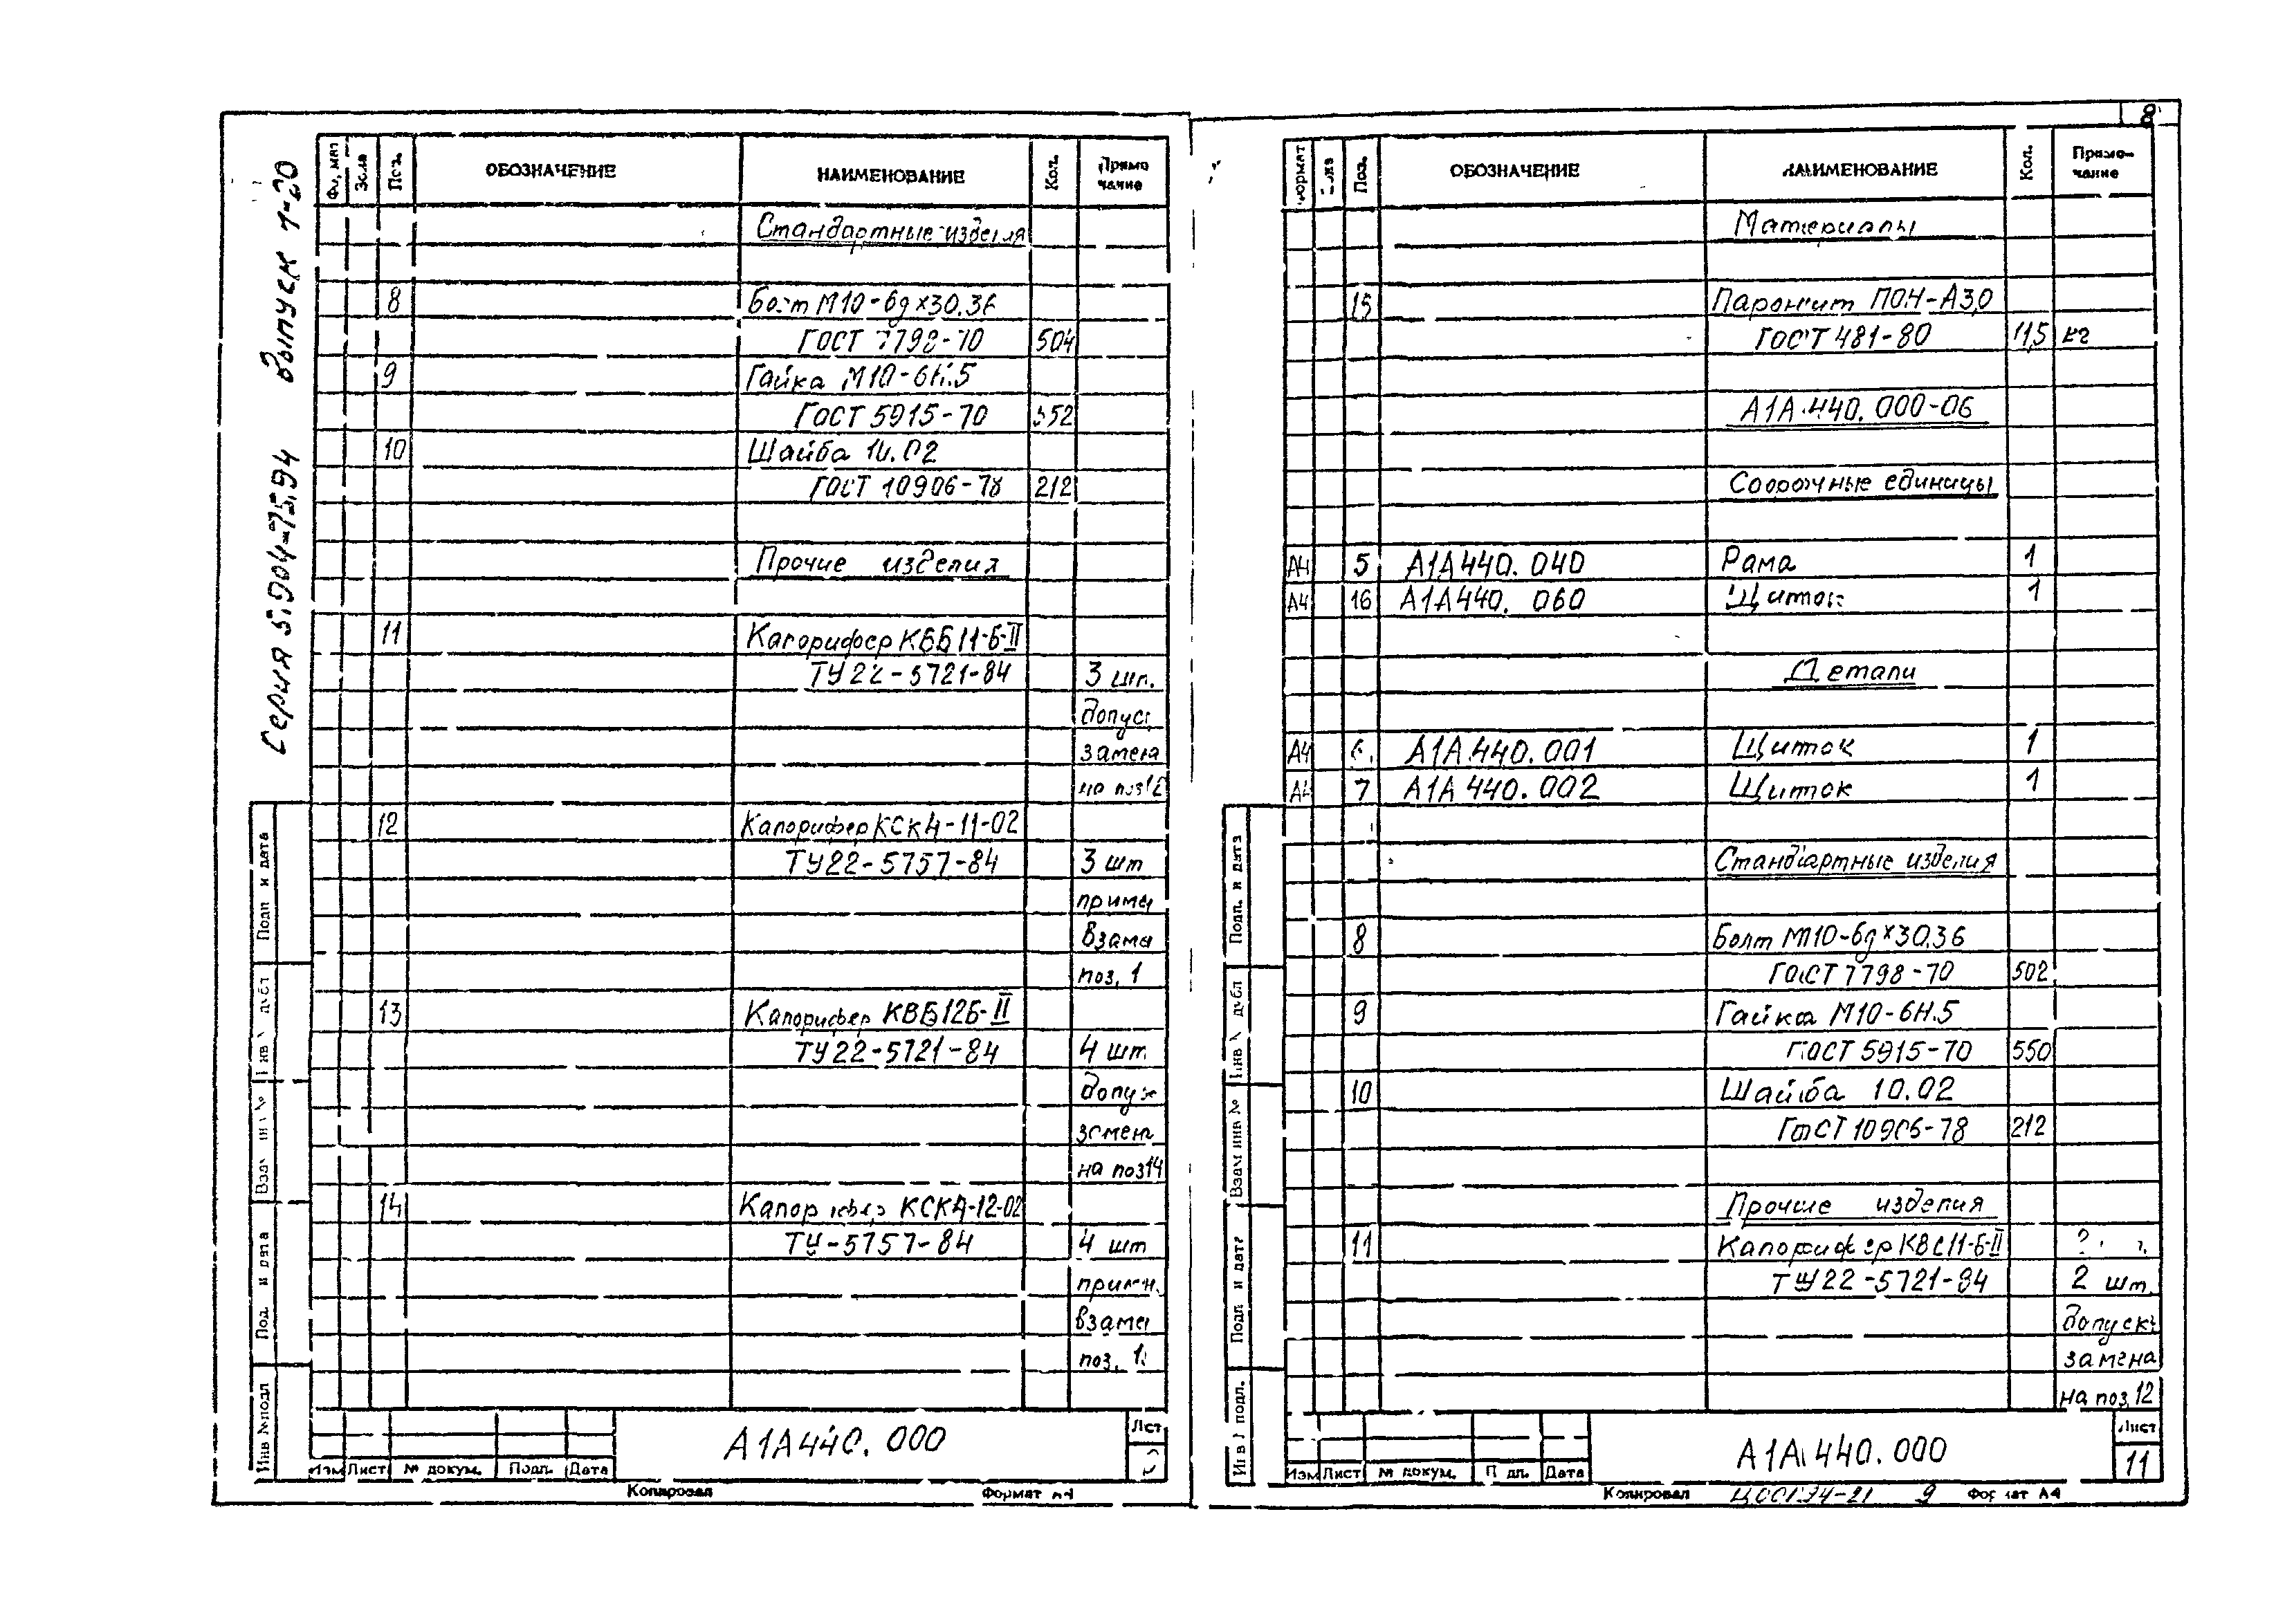 8
Серия 5.904-75.94 Выпуск 1-20
Зона Поз. ОБОЗНАЧЕНИЕ НАИМЕНОВАНИЕ Кол. Приме
чание
Стандартные изделия
8 Болт М10-6gx30.36
ГОСТ 7798-70 504
9 Гайка М10-6Н.5
ГОСТ 5915-70 552
10 Шайба 10.02
ГОСТ 10906-78 212
Прочие изделия
11 Калорифер КВБ11-Б-II
ТУ22-5721-84 3 шт.
допус
замена
на поз12
12 Калорифер КСк4-11-02
ТУ22-5757-84 3 шт
приме
взаме
поз. 1
13 Калорифер КВБ12Б-II
ТУ22-5721-84 4 шт.
допус
замен
на поз14
14 Калорифер КСК4-12-02
ТУ-5757-84 4 шт
примен.
взаме
поз. 1
Подп и дата
Инв № дубл
Взам инв №
Подп и дата
Инв №подл
А1А440.000
Лст
Изм Лист № докум. Подп. Дата
Копировал Формат А4
Формат Зона Поз. ОБОЗНАЧЕНИЕ НАИМЕНОВАНИЕ Кол. Приме-
чание
Материалы
15 Паронит ПОН-А3,0
ГОСТ 481-80 11,5 кг
А1А.440.000-06
Сборочные единицы
А4 5 А1А440.040 Рама 1
А4 16 А1А440.060 Щиток 1
Детали
А4 6 А1А.440.001 Щиток 1
А4 7 А1А440.002 Щиток 1
Стандартные изделия
8 Болт М10-6gx30.36
ГОСТ 7798-70 502
9 Гайка М10-6Н.5
ГОСТ 5915-70 550
10 Шайба 10.02
ГОСТ 10906-78 212
Прочие изделия
11 Калорифер КВС11-Б-II
ТУ22-5721-84 2 шт.
допуск
замена
на поз.12
Подп. и дата
Инв № дубл
Взам инв №
Подп и дата
Инв № подл.
А1А440.000
Лист
11
Изм Лист № докум. Подп. Дата
Копировал 9 Формат А4